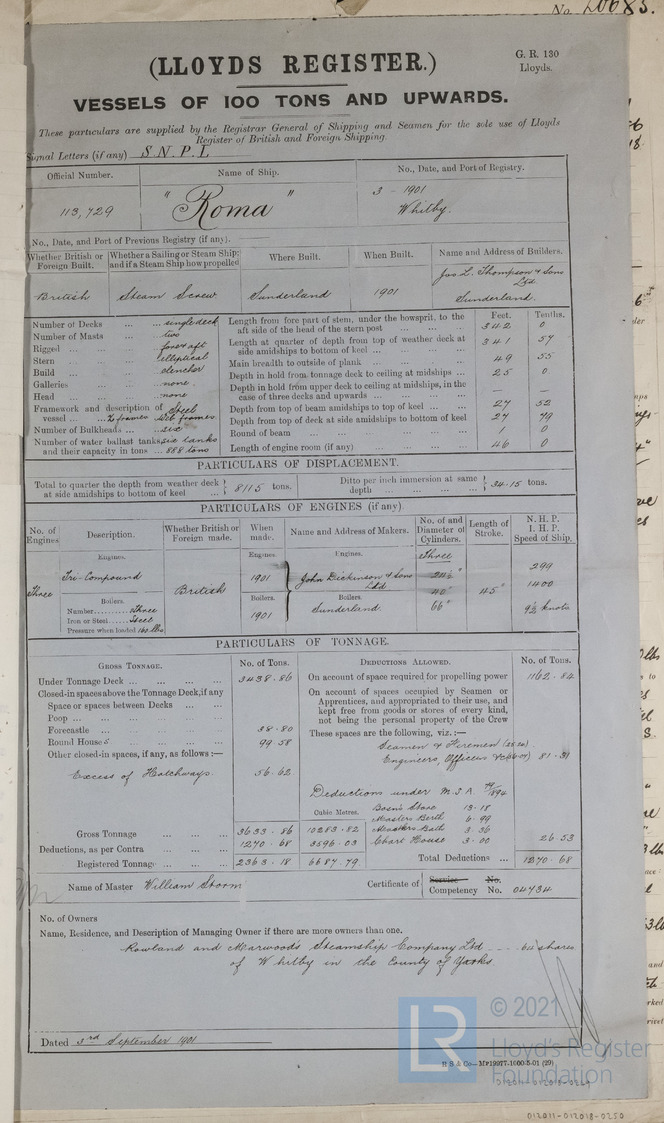 No. 20683.
(LLOYDS REGISTER.)
G. R. 130
Lloyds.
VESSELS OF 100 TONS AND UPWARDS.
These particulars are supplied by the Registrar General of Shipping and Seamen for the sole use of Lloyds
Register of British and Foreign Shipping.
Signal Letters (if any) S.N.P.L
Official Number. Name of Ship. No., Date, and Port of Registry.
113,729 "Roma" 3 - 1901
Whitby.
No., Date, and Port of Previous Registry (if any).
Whether British or Foreign Built. Whether a Sailing or Steam Ship; and if a Steam Ship how propelled Where Built. When Built. Name and Address of Builders.
British Steam Screw Sunderland 1901 Jos L. Thompson & Sons Ltd Sunderland.
Feet. Tenths.
Number of Decks ... ... single deck
Number of Masts ... ... two
Rigged ... ... ... fore & aft
Stern ... ... ... elliptical
Build ... ... ... clencher
Galleries ... ... none
Head ... ... ... none
Framework and description of vessel ... ... Steel Z frames Web frames
Number of Bulkheads ... ... six
Number of water ballast tanks, and their capacity in tons ... six tanks 888 tons
Length from fore part of stem, under the bowsprit, to the aft side of the head of the stern post ... ... ... 342 0
Length at quarter of depth from top of weather deck at side amidships to bottom of keel ... ... ... 341 57
Main breadth to outside of plank ... ... ... 49 55
Depth in hold from tonnage deck to ceiling at midships ... 25 0
Depth in hold from upper deck to ceiling at midships, in the case of three decks and upwards ... ... ... — —
Depth from top of beam amidships to top of keel ... ... 27 52
Depth from top of deck at side amidships to bottom of keel 27 79
Round of beam ... ... ... 1 0
Length of engine room (if any) ... ... ... 46 0
PARTICULARS OF DISPLACEMENT.
Total to quarter the depth from weather deck at side amidships to bottom of keel ... 8115 tons. Ditto per inch immersion at same depth ... ... ... 34.15 tons.
PARTICULARS OF ENGINES (if any)
No. of Engines Description. Whether British or Foreign made. When made. Name and Address of Makers. No. of and Diameter of Cylinders. Length of Stroke. N. H. P. I. H. P. Speed of Ship.
Engines. Engines. Engines. Three
Three Tri-Compound British 1901 John Dickinson & Sons Ltd 24½" 45" 299
40" 1400
Boilers. Boilers. Boilers.
Number.......... Three 1901 Sunderland. 66" 9½ knots
Iron or Steel...... Steel
Pressure when loaded 160 lbs
PARTICULARS OF TONNAGE.
GROSS TONNAGE. No. of Tons. DEDUCTIONS ALLOWED. No. of Tons.
Under Tonnage Deck ... ... ... 3438.86
Closed-in spaces above the Tonnage Deck, if any
Space or spaces between Decks ... ...
Poop ... ... ... ...
Forecastle ... ... ... 38.80
Round Houses ... ... ... 99.58
Other closed-in spaces, if any, as follows:—
Excess of Hatchways 56.62
On account of space required for propelling power 1162.84
On account of spaces occupied by Seamen or Apprentices, and appropriated to their use, and kept free from goods or stores of every kind, not being the personal property of the Crew
These spaces are the following, viz.:—
Seamen & Firemen
Engineers, Officers &c 81.31
Deductions under M.S.A. 1894
Cubic Metres. Bosn's Store 13.18
Masters Berth 6.99
Gross Tonnage ... ... ... 3633.86 10283.82 Masters Bath 3.36
Deductions, as per Contra ... ... 1270.68 3596.03 Chart House 3.00 26.53
Registered Tonnage ... ... 2363.18 6687.79 Total Deductions ... 1270.68
Name of Master William Storm Certificate of Service No. Competency No. 04734
No. of Owners
Name, Residence, and Description of Managing Owner if there are more owners than one.
Rowland and Marwood's Steamship Company Ltd ... 64 shares
of Whitby in the County of Yorks
© 2021
LR Lloyd's Register
Foundation
Dated 3rd September 1901
R S & Co—MP19977-1000-5-01 (29)
012011-012018-0250